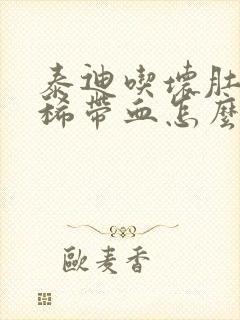 泰迪喫壞肚
稀帶血怎麼
歐麦香